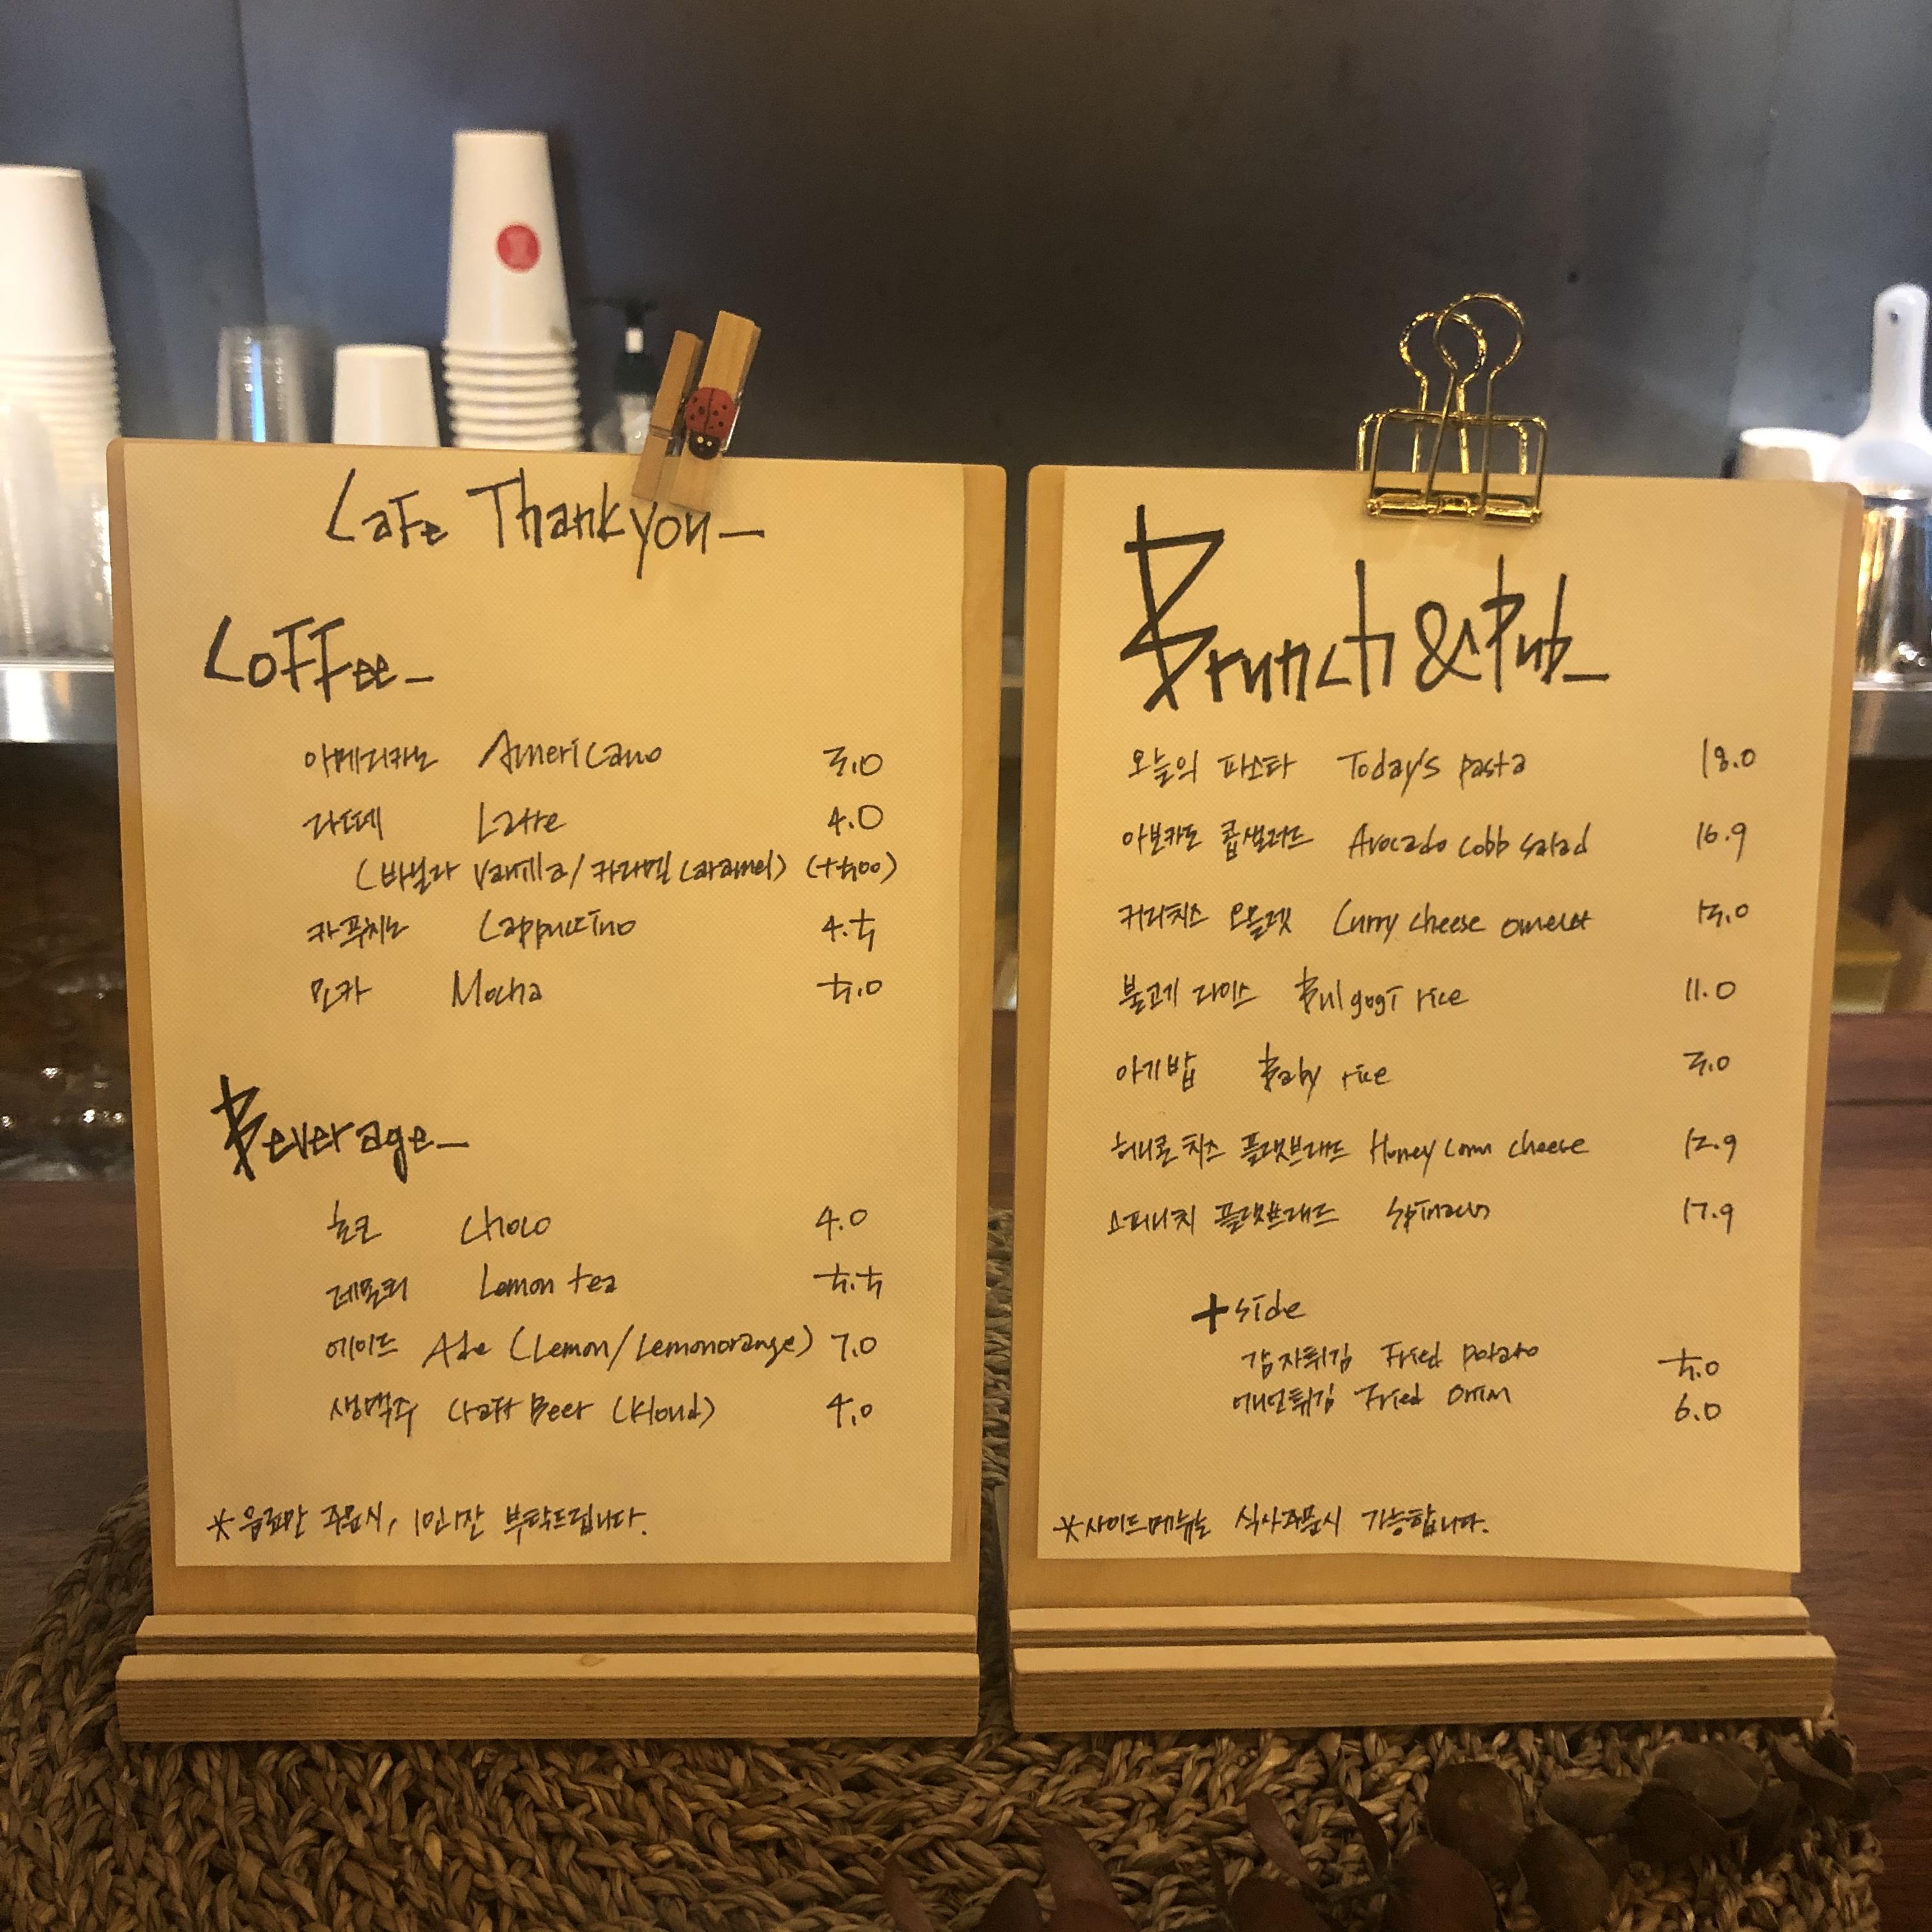 Cafe Thankyou_
Coffee_
아메리카노 Americano 3.0
라떼 Latte 4.0
(바닐라 Vanilla/카라멜 Caramel) (+500)
카푸치노 Cappuccino 4.5
모카 Mocha 5.0
Beverage_
초코 Choco 4.0
레몬티 Lemon tea 5.5
에이드 Ade (Lemon/Lemonorange) 7.0
생맥주 Craft Beer (Kloud) 4.0
*음료만 주문시, 1인1잔 부탁드립니다.
Brunch & Pub_
오늘의 파스타 Today's pasta 18.0
아보카도 콥샐러드 Avocado cobb salad 16.9
커리치즈 오믈렛 Curry cheese omelet
불고기 라이스 Bulgogi rice 11.0
아기밥 Baby rice 3.0
허니콘치즈 플랫브래드 Honey corn cheese 12.9
스피니치 플랫브래드 Spinach 17.9
+ side
감자튀김 Fried potato 5.0
어니언튀김 Fried Onion 6.0
*사이드메뉴는 식사주문시 가능합니다.